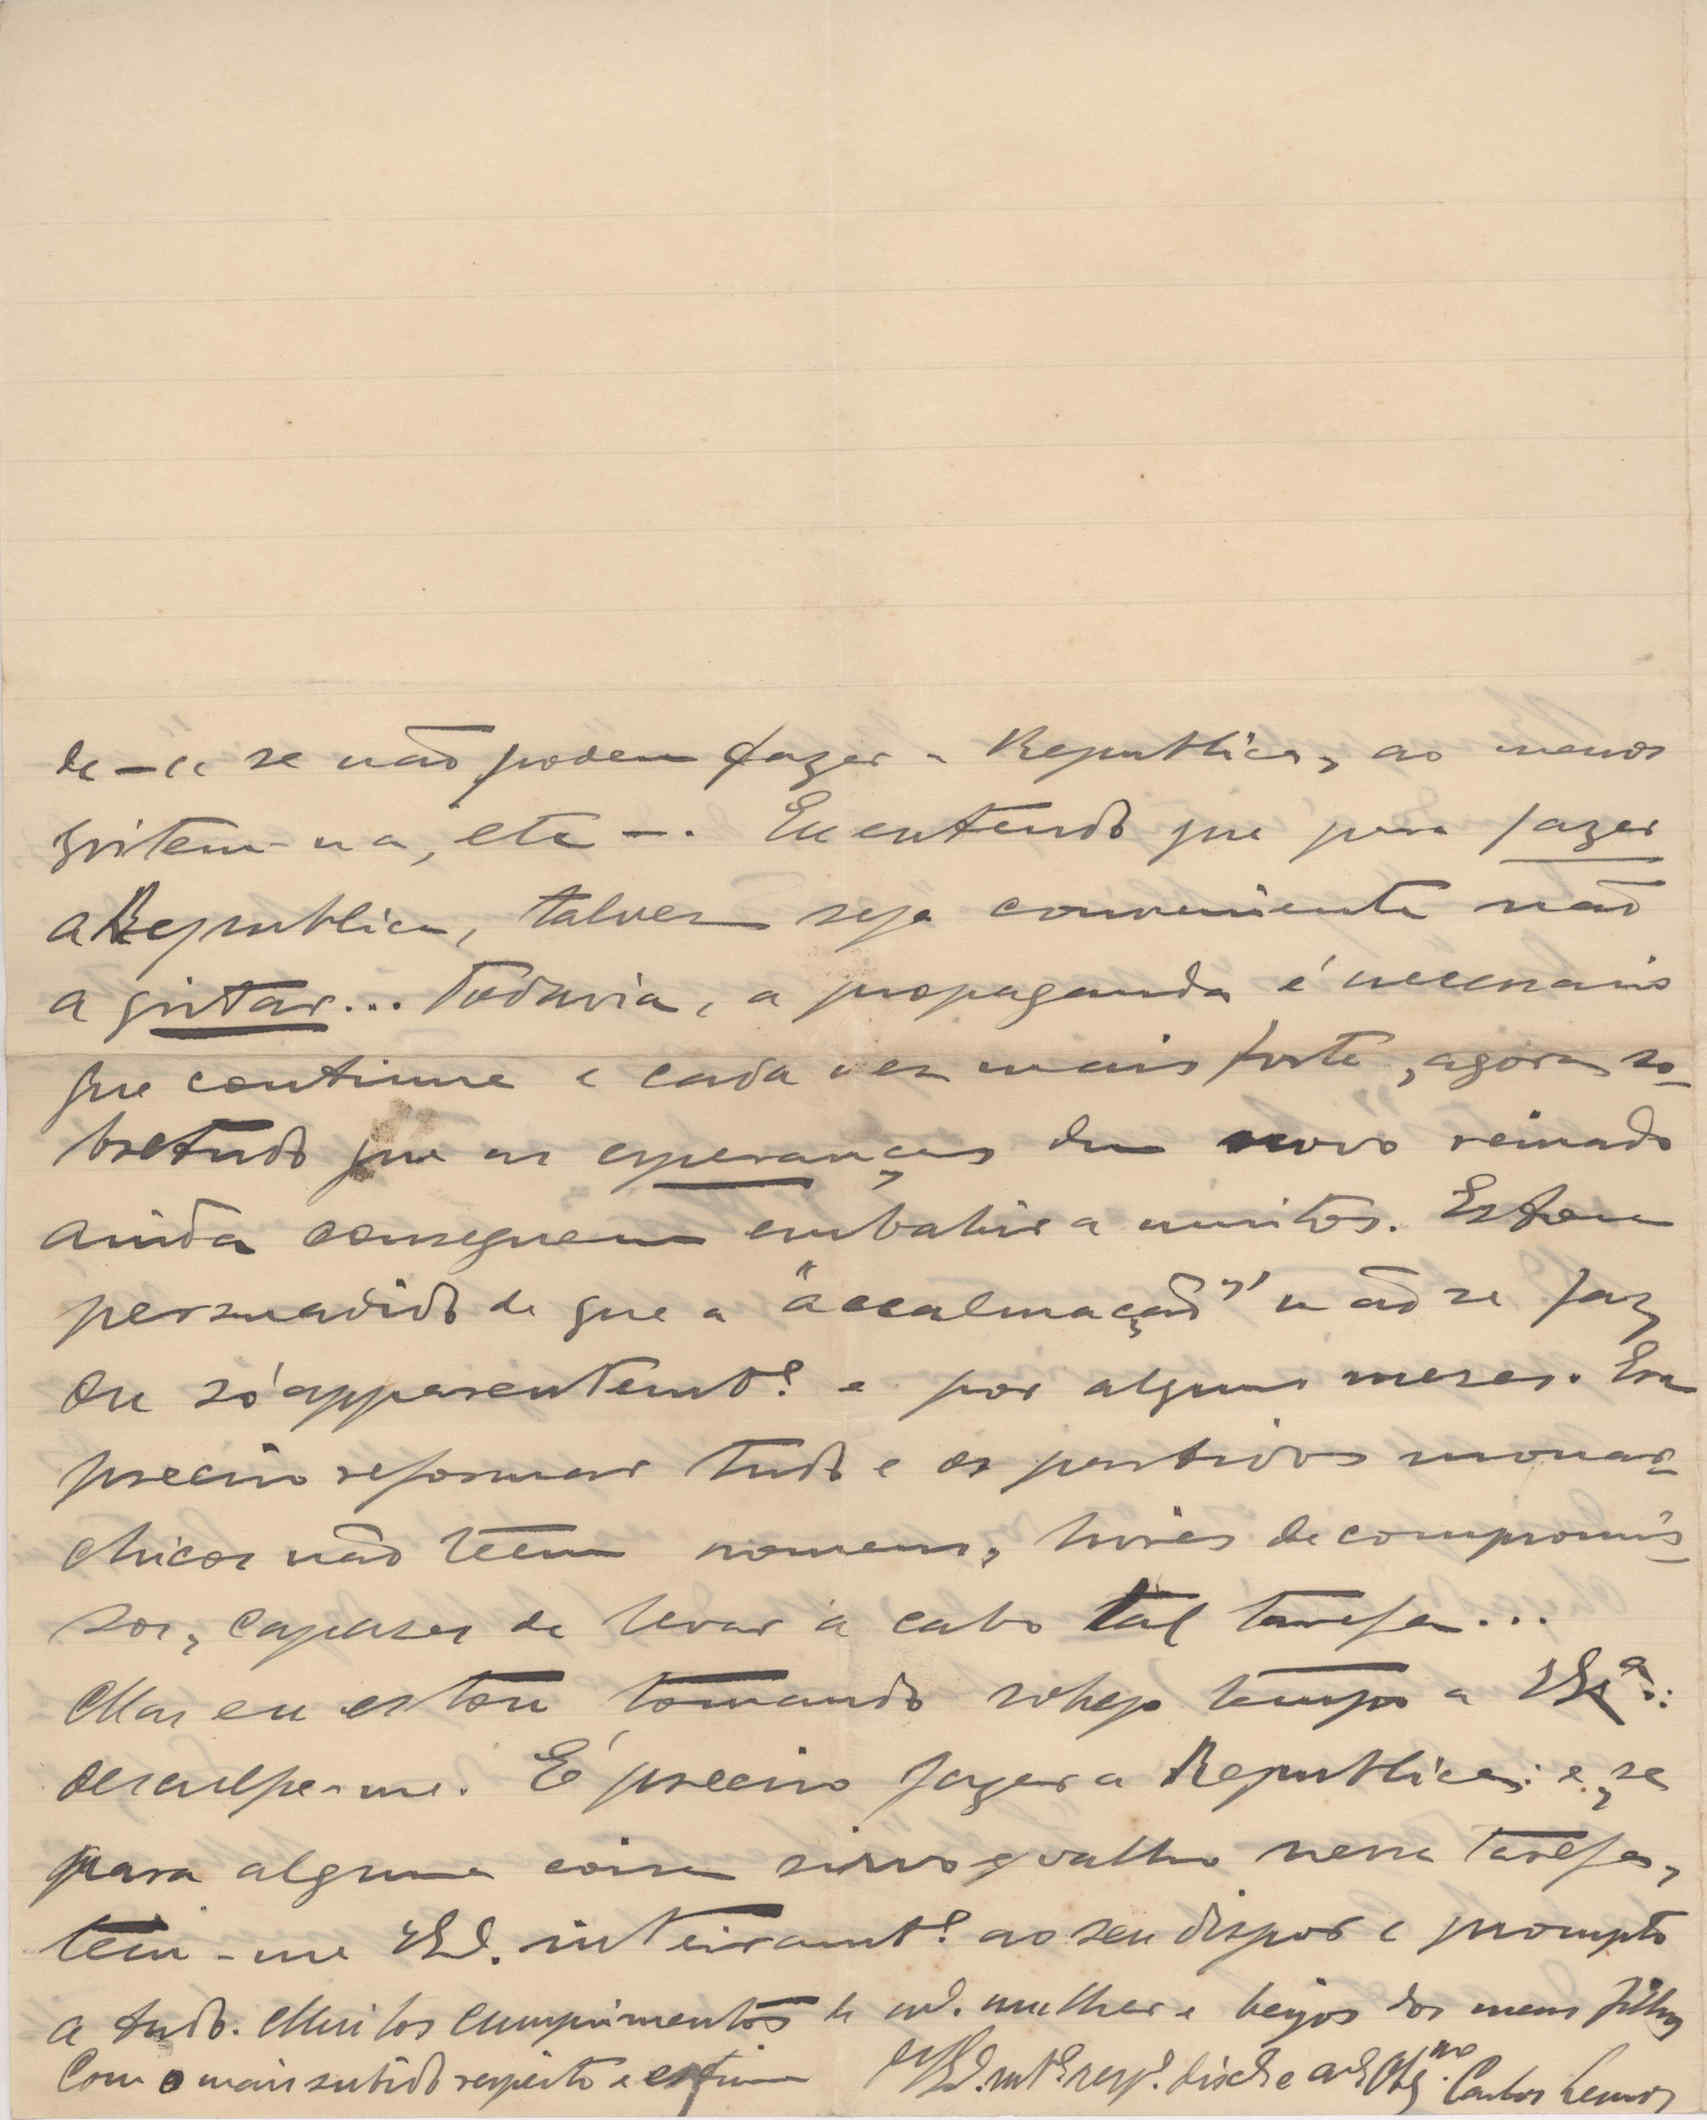 de — se não podem fazer a Republica, ao menos
gritem-na, etc —. Eu entendo que para fazer
a Republica, talvez seja conveniente não
a gritar... Todavia, a propaganda é necessario
que continue e cada vez mais forte, agora so-
bretudo que as esperanças dum novo reinado
ainda conseguem embahir a muitos. Estou
persuadido de que a "accalmação" não se faz
ou só apparentemte e por alguns mezes. Era
preciso reformar tudo e os partidos monar-
chicos não teem homens, livres de compromis-
sos, capazes de levar a cabo tal tarefa...
Mas eu estou tomando a VExa:
desculpe-me. É preciso fazer a Republica: e, se
para alguma coisa sirvo e valho nessa tarefa,
tem-me VEa. inteiramte ao seu dispor e prompto
a tudo. Muitos cumprimentos de ma. mulher e beijos dos meus filhos
Com o mais subido respeito e estima
De VEa. mto respr. disco e Obgmo Carlos Lemos